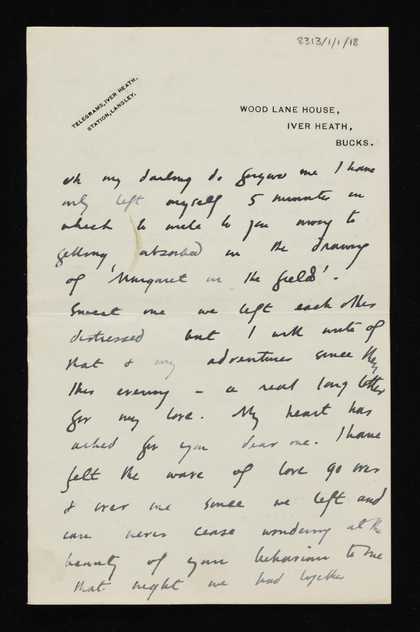 8313/1/1/18
TELEGRAMS, IVER HEATH.
STATION, LANGLEY.
WOOD LANE HOUSE,
IVER HEATH,
BUCKS.
Oh my darling do forgive me I have
only left myself 5 minutes in
which to write to you owing to
getting absorbed in the drawing
of 'Margaret in the fields'.
Sweet one we left each other
distressed but I will write of
that & my adventures since then
this evening – a real long letter
for my love. My heart has
ached for you dear one. I have
felt the wave of love go over
& over me since we left and
can never cease wondering at the
beauty of your behaviour to me
that night we had together